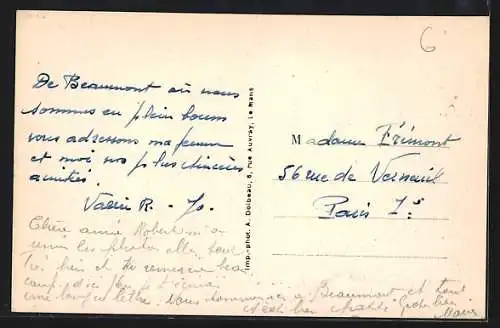 De Beaumont où nous
sommes en plein boum
vous adressons ma femme
et moi nos plus sincères
amitiés.
Vasin R. - Jo.
Chère amie Robert m'a
remis les photos elle sont
très bien et te remercie beau
coup
une longue lettre. Nous sommes à Beaumont et tout
bien
6
Imp.-phot. A. Dolbeau, 6, rue Auvray, Le Mans
Madame Frémont
56 rue de Verneuil
Paris 7e